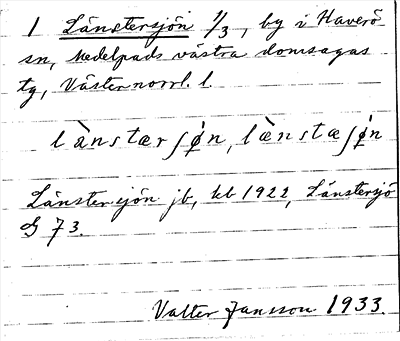 1 Länstersjön 1/3, by i Haverö
sn, Medelpads västra domsagas
tg, Västernorrl. l.
lànstærʃø̀n, læ̀nstæʃø̀n
Länstersjön jb, kb 1922, Länstersjö
G 73.
Valter Jansson 1933.